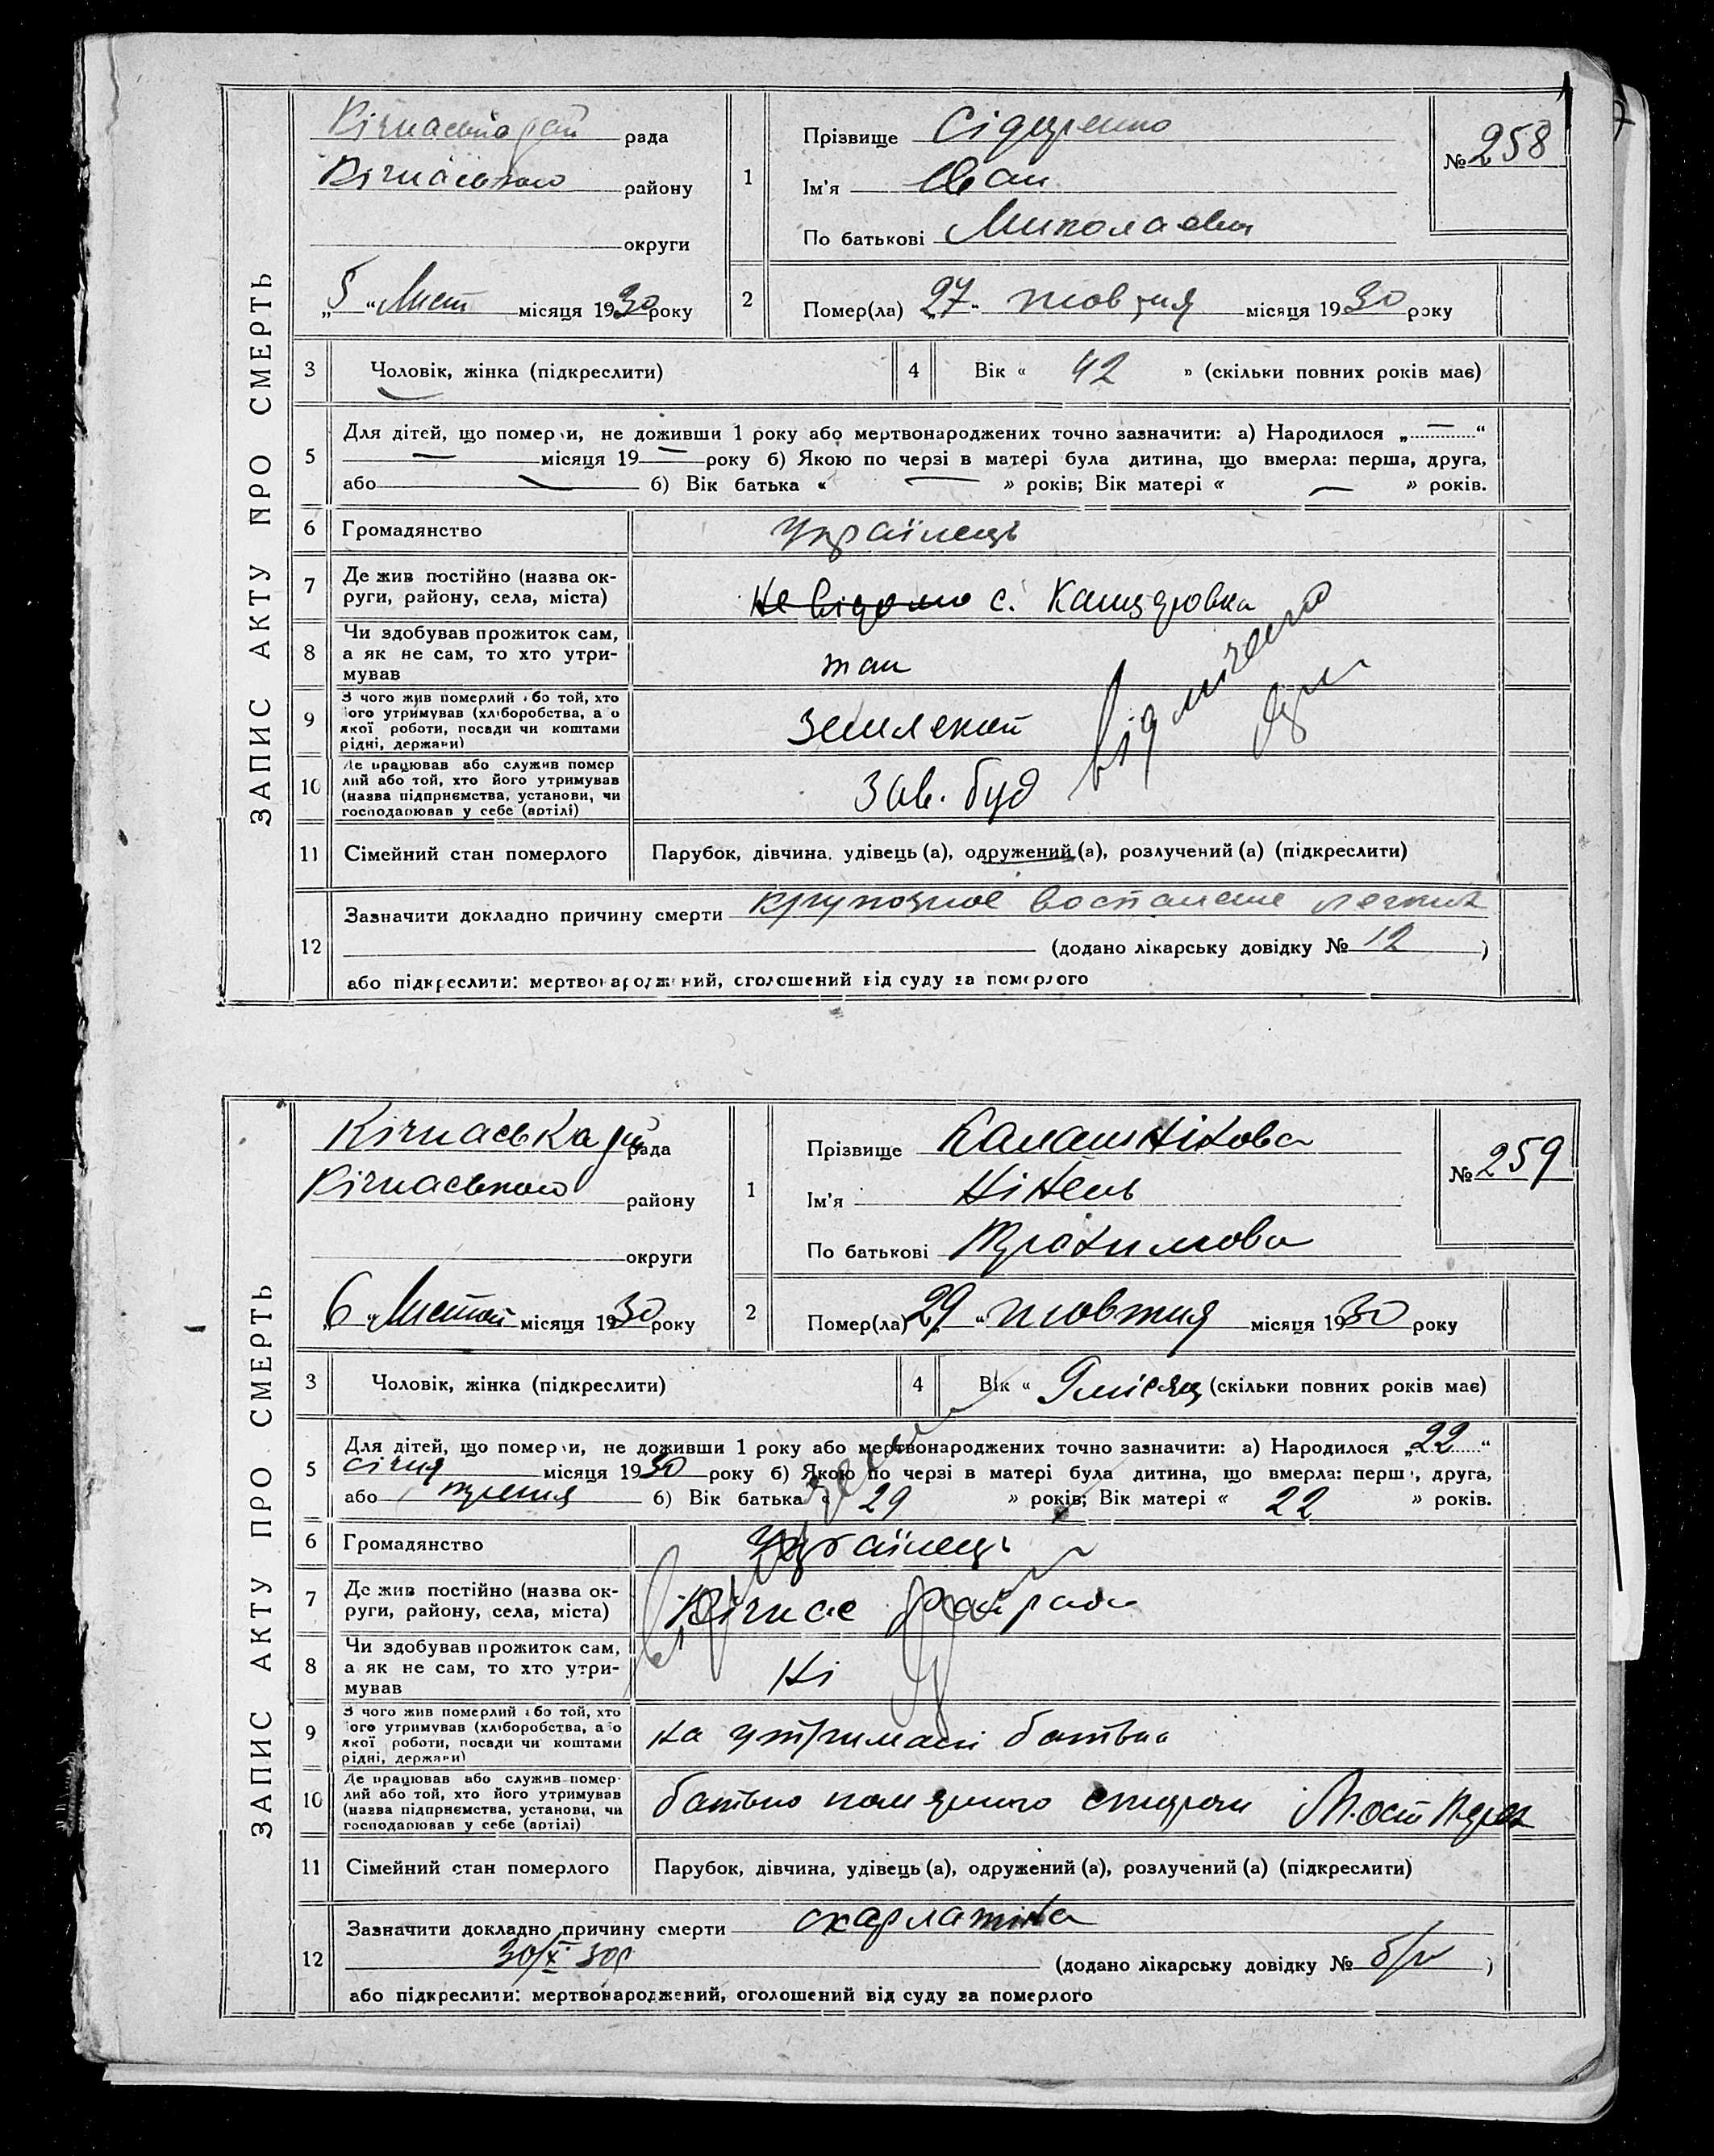 ЗАПИС АКТУ ПРО СМЕРТЬ
Кічкаська рай рада
Кічкаського району
округи
„5“ Лист місяця 1930 року
1
Прізвище Сідоренко
Ім'я Іван
По батькові Миколаєвич
№ 258
2
Помер(ла) „27“ жовтня місяця 1930 року
3 Чоловік, жінка (підкреслити)
4 Вік « 42 » (скільки повних років має)
5 Для дітей, що померли, не доживши 1 року або мертвонароджених точно зазначити: а) Народилося „—“
— місяця 19— року б) Якою по черзі в матері була дитина, що вмерла: перша, друга,
або — б) Вік батька « — » років; Вік матері « — » років.
6 Громадянство Українець
7 Де жив постійно (назва ок-
руги, району, села, міста) Невідомо с.
8 Чи здобував прожиток сам,
а як не сам, то хто утри-
мував так
9 З чого жив померлий або той, хто
його утримував (хліборобства, або
якої роботи, посади чи коштами
рідні, держави) Землекоп
10 Де працював або служив помер
лий або той, хто його утримував
(назва підприємства, установи, чи
господарював у себе (артілі) Зав. буд
відмічено
11 Сімейний стан померлого Парубок, дівчина, удівець (а), одружений (а), розлучений (а) (підкреслити)
12 Зазначити докладно причину смерти крупозное воспаление легких
(додано лікарську довідку № 12 )
або підкреслити: мертвонароджений, оголошений від суду за померлого
ЗАПИС АКТУ ПРО СМЕРТЬ
Кічкаська рай рада
Кічкаського району
округи
„6“ Листоп місяця 1930 року
1
Прізвище Калашнікова
Ім'я Нінель
По батькові Трохимова
№ 259
2
Помер(ла) „29“ жовтня місяця 1930 року
3 Чоловік, жінка (підкреслити)
4 Вік « 9 місяц (скільки повних років має)
5 Для дітей, що померли, не доживши 1 року або мертвонароджених точно зазначити: а) Народилося „22“
січня місяця 1930 року б) Якою по черзі в матері була дитина, що вмерла: перша, друга,
або третя б) Вік батька « 29 » років; Вік матері « 22 » років.
6 Громадянство Українець
7 Де жив постійно (назва ок-
руги, району, села, міста) Кічкас райрада
8 Чи здобував прожиток сам,
а як не сам, то хто утри-
мував Ні
9 З чого жив померлий або той, хто
його утримував (хліборобства, або
якої роботи, посади чи коштами
рідні, держави) на утримані батька
10 Де працював або служив помер-
лий або той, хто його утримував
(назва підприємства, установи, чи
господарював у себе (артілі) батько
11 Сімейний стан померлого Парубок, дівчина, удівець (а), одружений (а), розлучений (а) (підкреслити)
12 Зазначити докладно причину смерти скарлатина
30/X 30р (додано лікарську довідку № б/н )
або підкреслити: мертвонароджений, оголошений від суду за померлого